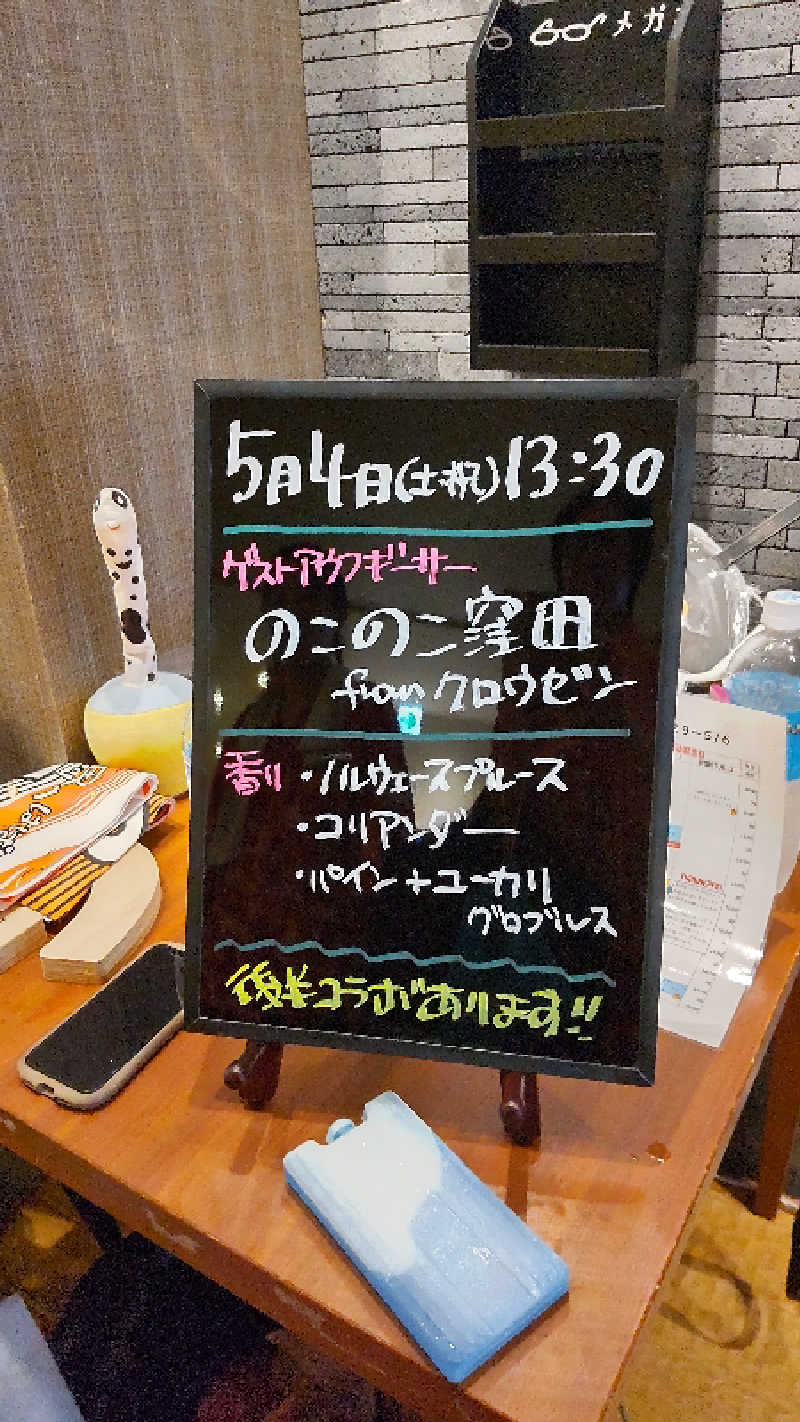 メガ
5月4日(土・祝)13:30
ゲストアウフギーサー
のこのこ窪田
from クロウゼン
香り・ノルウェースプルース
・コリアンダー
・パイン+ユーカリ
グロブルス
後半コラボあります!!